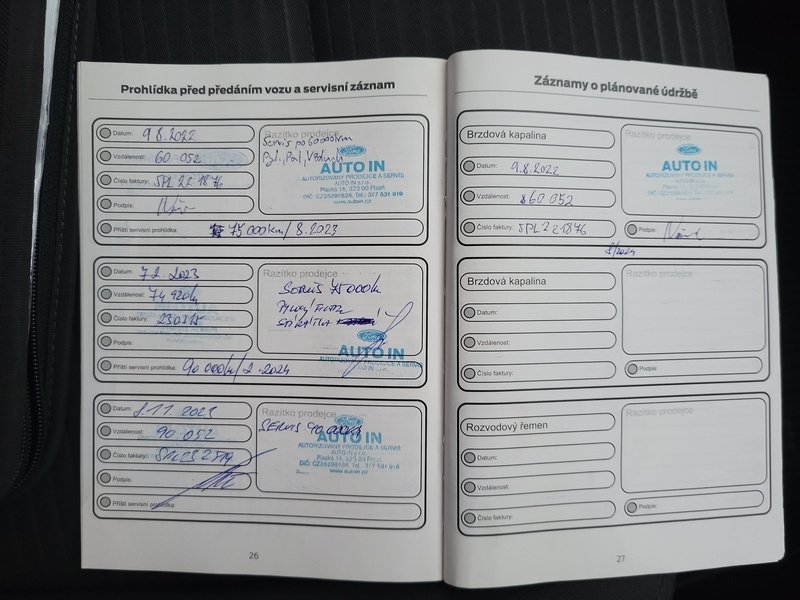 Prohlídka před předáním vozu a servisní záznam
Datum: 9.8.2022
Vzdálenost: 60 052
Číslo faktury: SPL221876
Podpis:
Příští servisní prohlídka: 75 000km/8.2023
Razítko prodejce
Servis po 60000km
Pyl., Pal, Vzduch
Ford
AUTO IN
AUTORIZOVANÝ PRODEJCE A SERVIS
AUTO IN s.r.o.
Plaská 14, 323 00 Plzeň
DIČ: CZ25298828, Tel.: 377 531 919
www.autoin.cz
Datum: 7.2.2023
Vzdálenost: 74 420km
Číslo faktury: 230315
Podpis:
Příští servisní prohlídka: 90 000km/2.2024
Razítko prodejce
SERVIS 75 000km
Ford
AUTO IN
AUTORIZOVANÝ PRODEJCE A SERVIS
Datum: 11.2023
Vzdálenost: 90 052
Číslo faktury:
Podpis:
Příští servisní prohlídka:
Razítko prodejce
SERVIS 90 000km
Ford
AUTO IN
AUTORIZOVANÝ PRODEJCE A SERVIS
AUTO IN s.r.o.
Plaská 14, 323 00 Plzeň
DIČ: CZ25298828, Tel.: 377 531 919
www.autoin.cz
26
Záznamy o plánované údržbě
Brzdová kapalina
Datum: 9.8.2022
Vzdálenost: 60 052
Číslo faktury: SPL221876
Razítko prodejce
Ford
AUTO IN
AUTORIZOVANÝ PRODEJCE A SERVIS
Podpis:
8/2024
Brzdová kapalina
Datum:
Vzdálenost:
Číslo faktury:
Razítko prodejce
Podpis:
Rozvodový řemen
Datum:
Vzdálenost:
Číslo faktury:
Razítko prodejce
Podpis:
27